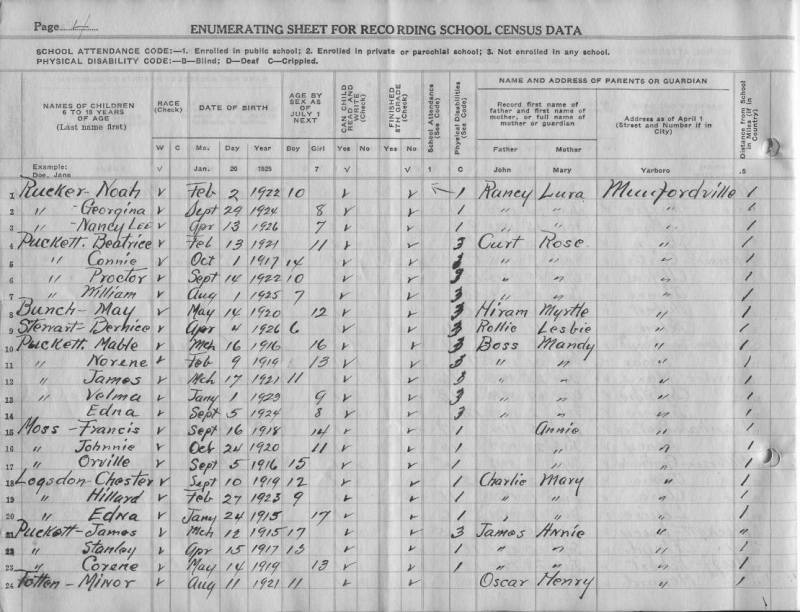 Page 4
ENUMERATING SHEET FOR RECORDING SCHOOL CENSUS DATA
SCHOOL ATTENDANCE CODE:—1. Enrolled in public school; 2. Enrolled in private or parochial school; 3. Not enrolled in any school.
PHYSICAL DISABILITY CODE:—B—Blind; D—Deaf C—Crippled.
NAMES OF CHILDREN 6 TO 18 YEARS OF AGE (Last name first) RACE (Check) DATE OF BIRTH AGE BY SEX AS OF JULY 1 NEXT CAN CHILD READ AND WRITE (Check) FINISHED 8TH GRADE (Check) School Attendance (See Code) Physical Disabilities (See Code) NAME AND ADDRESS OF PARENTS OR GUARDIAN Distance from School in Miles (if in Country)
Record first name of father and first name of mother, or full name of mother or guardian Address as of April 1 (Street and Number if in City)
W C Mo. Day Year Boy Girl Yes No Yes No Father Mother
Example: Doe, Jane V Jan. 20 1925 7 V V 1 C John Mary Yarboro .5
1 Rucker - Noah v Feb 2 1922 10 v v 1 Rancy Lura Munfordville 1
2 " - Georgina v Sept 29 1924 8 v v 1 " " " 1
3 " - Nancy Lee v Apr 13 1926 7 v v 1 " " " 1
4 Puckett. Beatrice v Feb 13 1921 11 v v 3 Curt Rose " 1
5 " Connie v Oct 1 1917 14 v v " " " 1
6 " Proctor v Sept 14 1922 10 v v 3 " " " 1
7 " William v Aug 1 1925 7 v v 3 " " " 1
8 Bunch - May v May 14 1920 12 v v 3 Hiram Myrtle " 1
9 Stewart - Bernice v Apr 4 1926 6 v v 3 Rollie Lesbie " 1
10 Puckett. Mable v Mch 16 1916 16 v v 3 Boss Mandy " 1
11 " Norene v Feb 9 1919 13 v v 3 " " " 1
12 " James v Mch 17 1921 11 v v 3 " " " 1
13 " Velma v Jany 1 1923 9 v v 3 " " " 1
14 Edna v Sept 5 1924 8 v v 3 " " " 1
15 Moss - Francis v Sept 16 1918 14 v v 1 Annie " 1
16 " Johnnie v Oct 24 1920 11 v v 1 " " 1
17 " Orville v Sept 5 1916 15 v v 1 " " 1
18 Logsdon - Chester v Sept 10 1919 12 v v 1 Charlie Mary " 1
19 " Hillard v Feb 27 1923 9 v v 1 " " " 1
20 " Edna v Jany 24 1915 17 v v 1 " " " 1
21 Puckett - James v Mch 12 1915 17 v v 3 James Annie " 1
22 " Stanley v Apr 15 1917 15 v v 1 " " " 1
23 " Corene v May 14 1919 13 v v 1 " " " 1
24 Totten - Minor v Aug 11 1921 11 v v Oscar Henry " 1